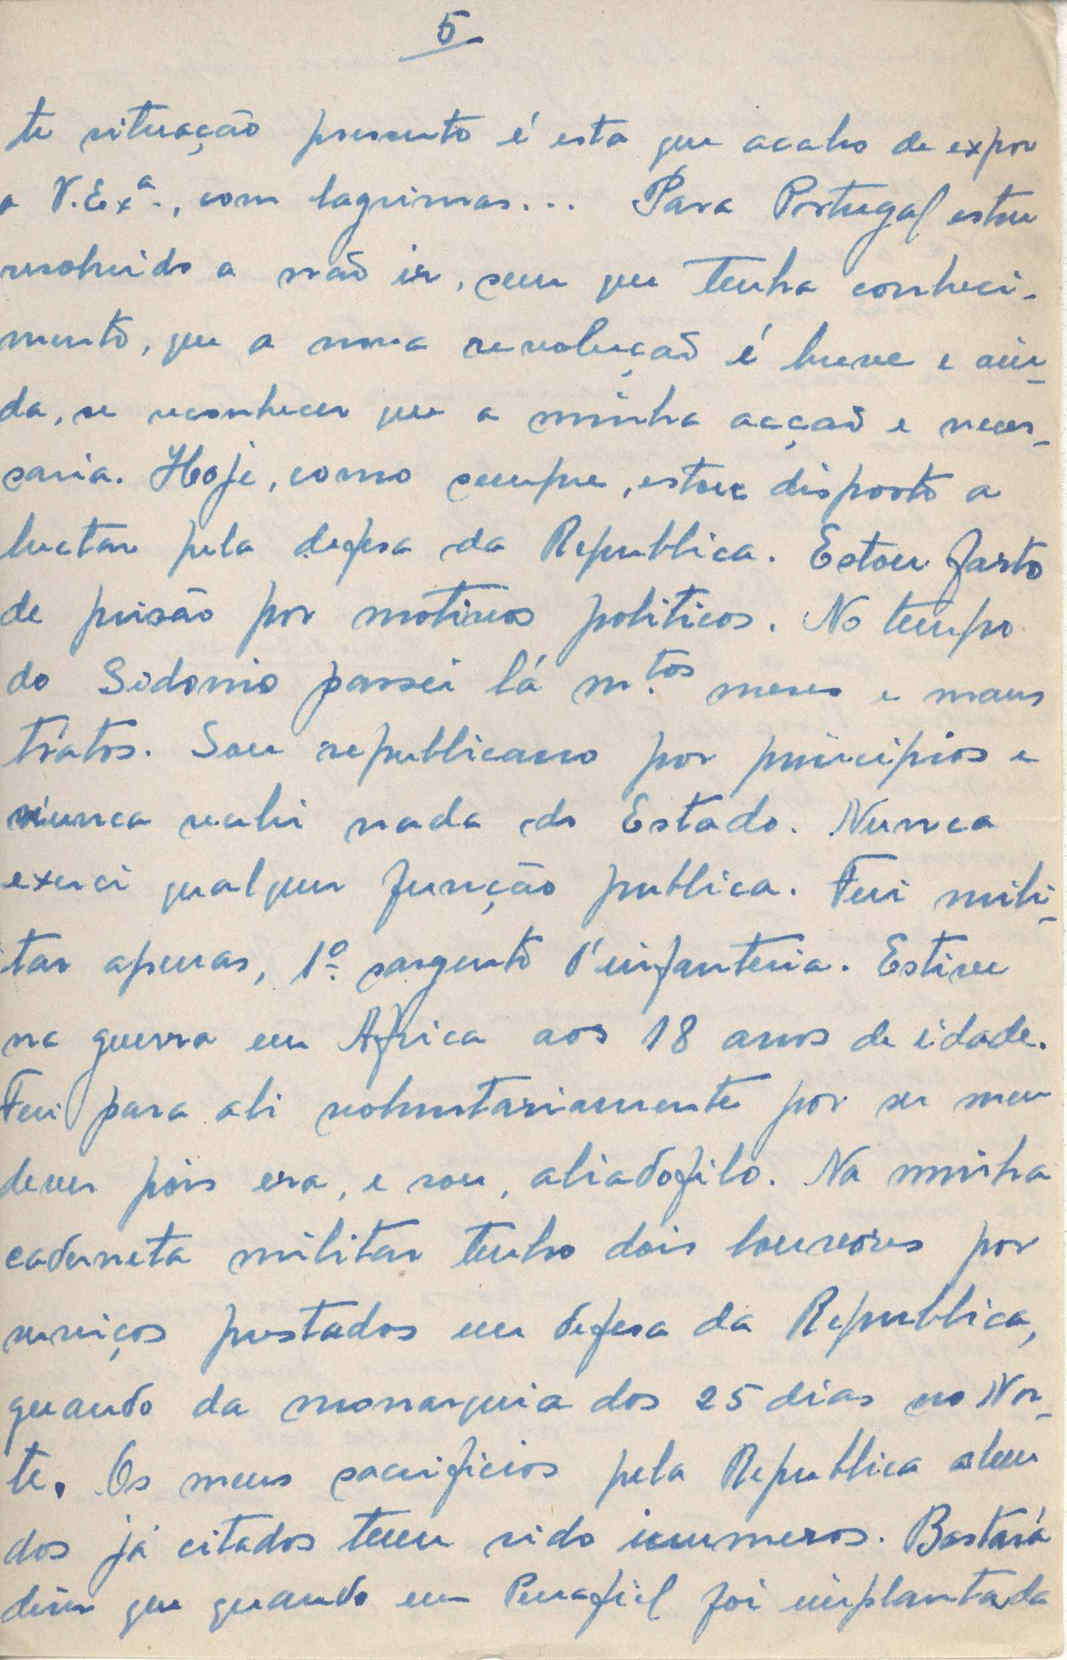 5
te situação presente é esta que acabo de expor
a V. Exª., com lagrimas... Para Portugal estou
resolvido a não ir, sem que tenha conheci-
mento, que a nova revolução é breve e ain-
da, se reconhecer que a minha acção e neces-
saria. Hoje, como sempre, estou disposto a
luctar pela defesa da Republica. Estou farto
de prisão por motivos politicos. No tempo
do Sidonio passei lá m.tos meses e maus
tratos. Sou republicano por principios e
nunca recebi nada do Estado. Nunca
exerci qualquer função publica. Fui mili-
tar apenas, 1º sargento d'infanteria. Estive
na guerra em Africa aos 18 anos de idade.
Fui para ali voluntariamente por ser meu
dever pois era, e sou, aliadofilo. Na minha
caderneta militar tenho dois louvores por
serviços prestados em defesa da Republica,
quando da monarquia dos 25 dias no Nor-
te. Os meus sacrificios pela Republica alem
dos já citados teem sido inumeros. Bastará
dizer que quando em Penafiel foi implantada